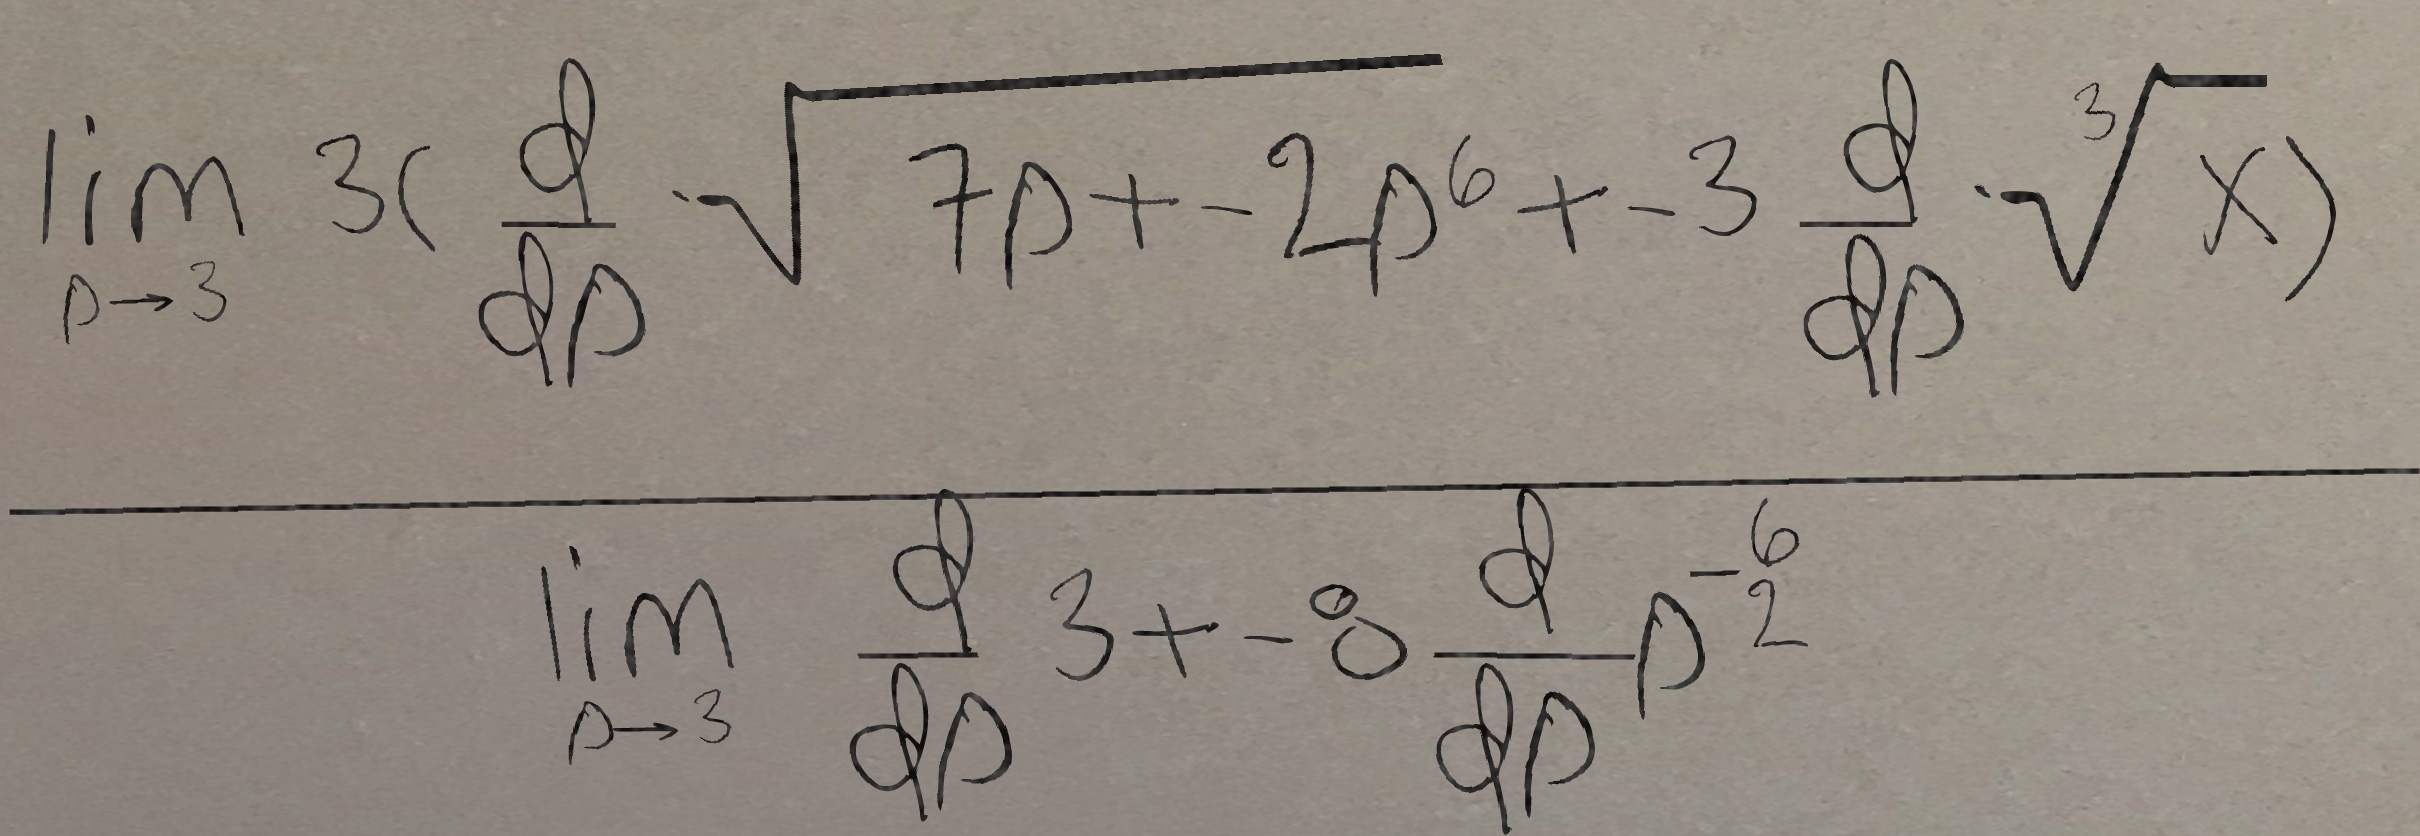 \frac{\lim_{p \to 3} 3(\frac{d}{dp} \cdot \sqrt{7p + -2p^6} + -3 \frac{d}{dp} \cdot \sqrt[3]{x})}{\lim_{p \to 3} \frac{d}{dp} 3 + -8 \frac{d}{dp} p^{-\frac{6}{2}}}